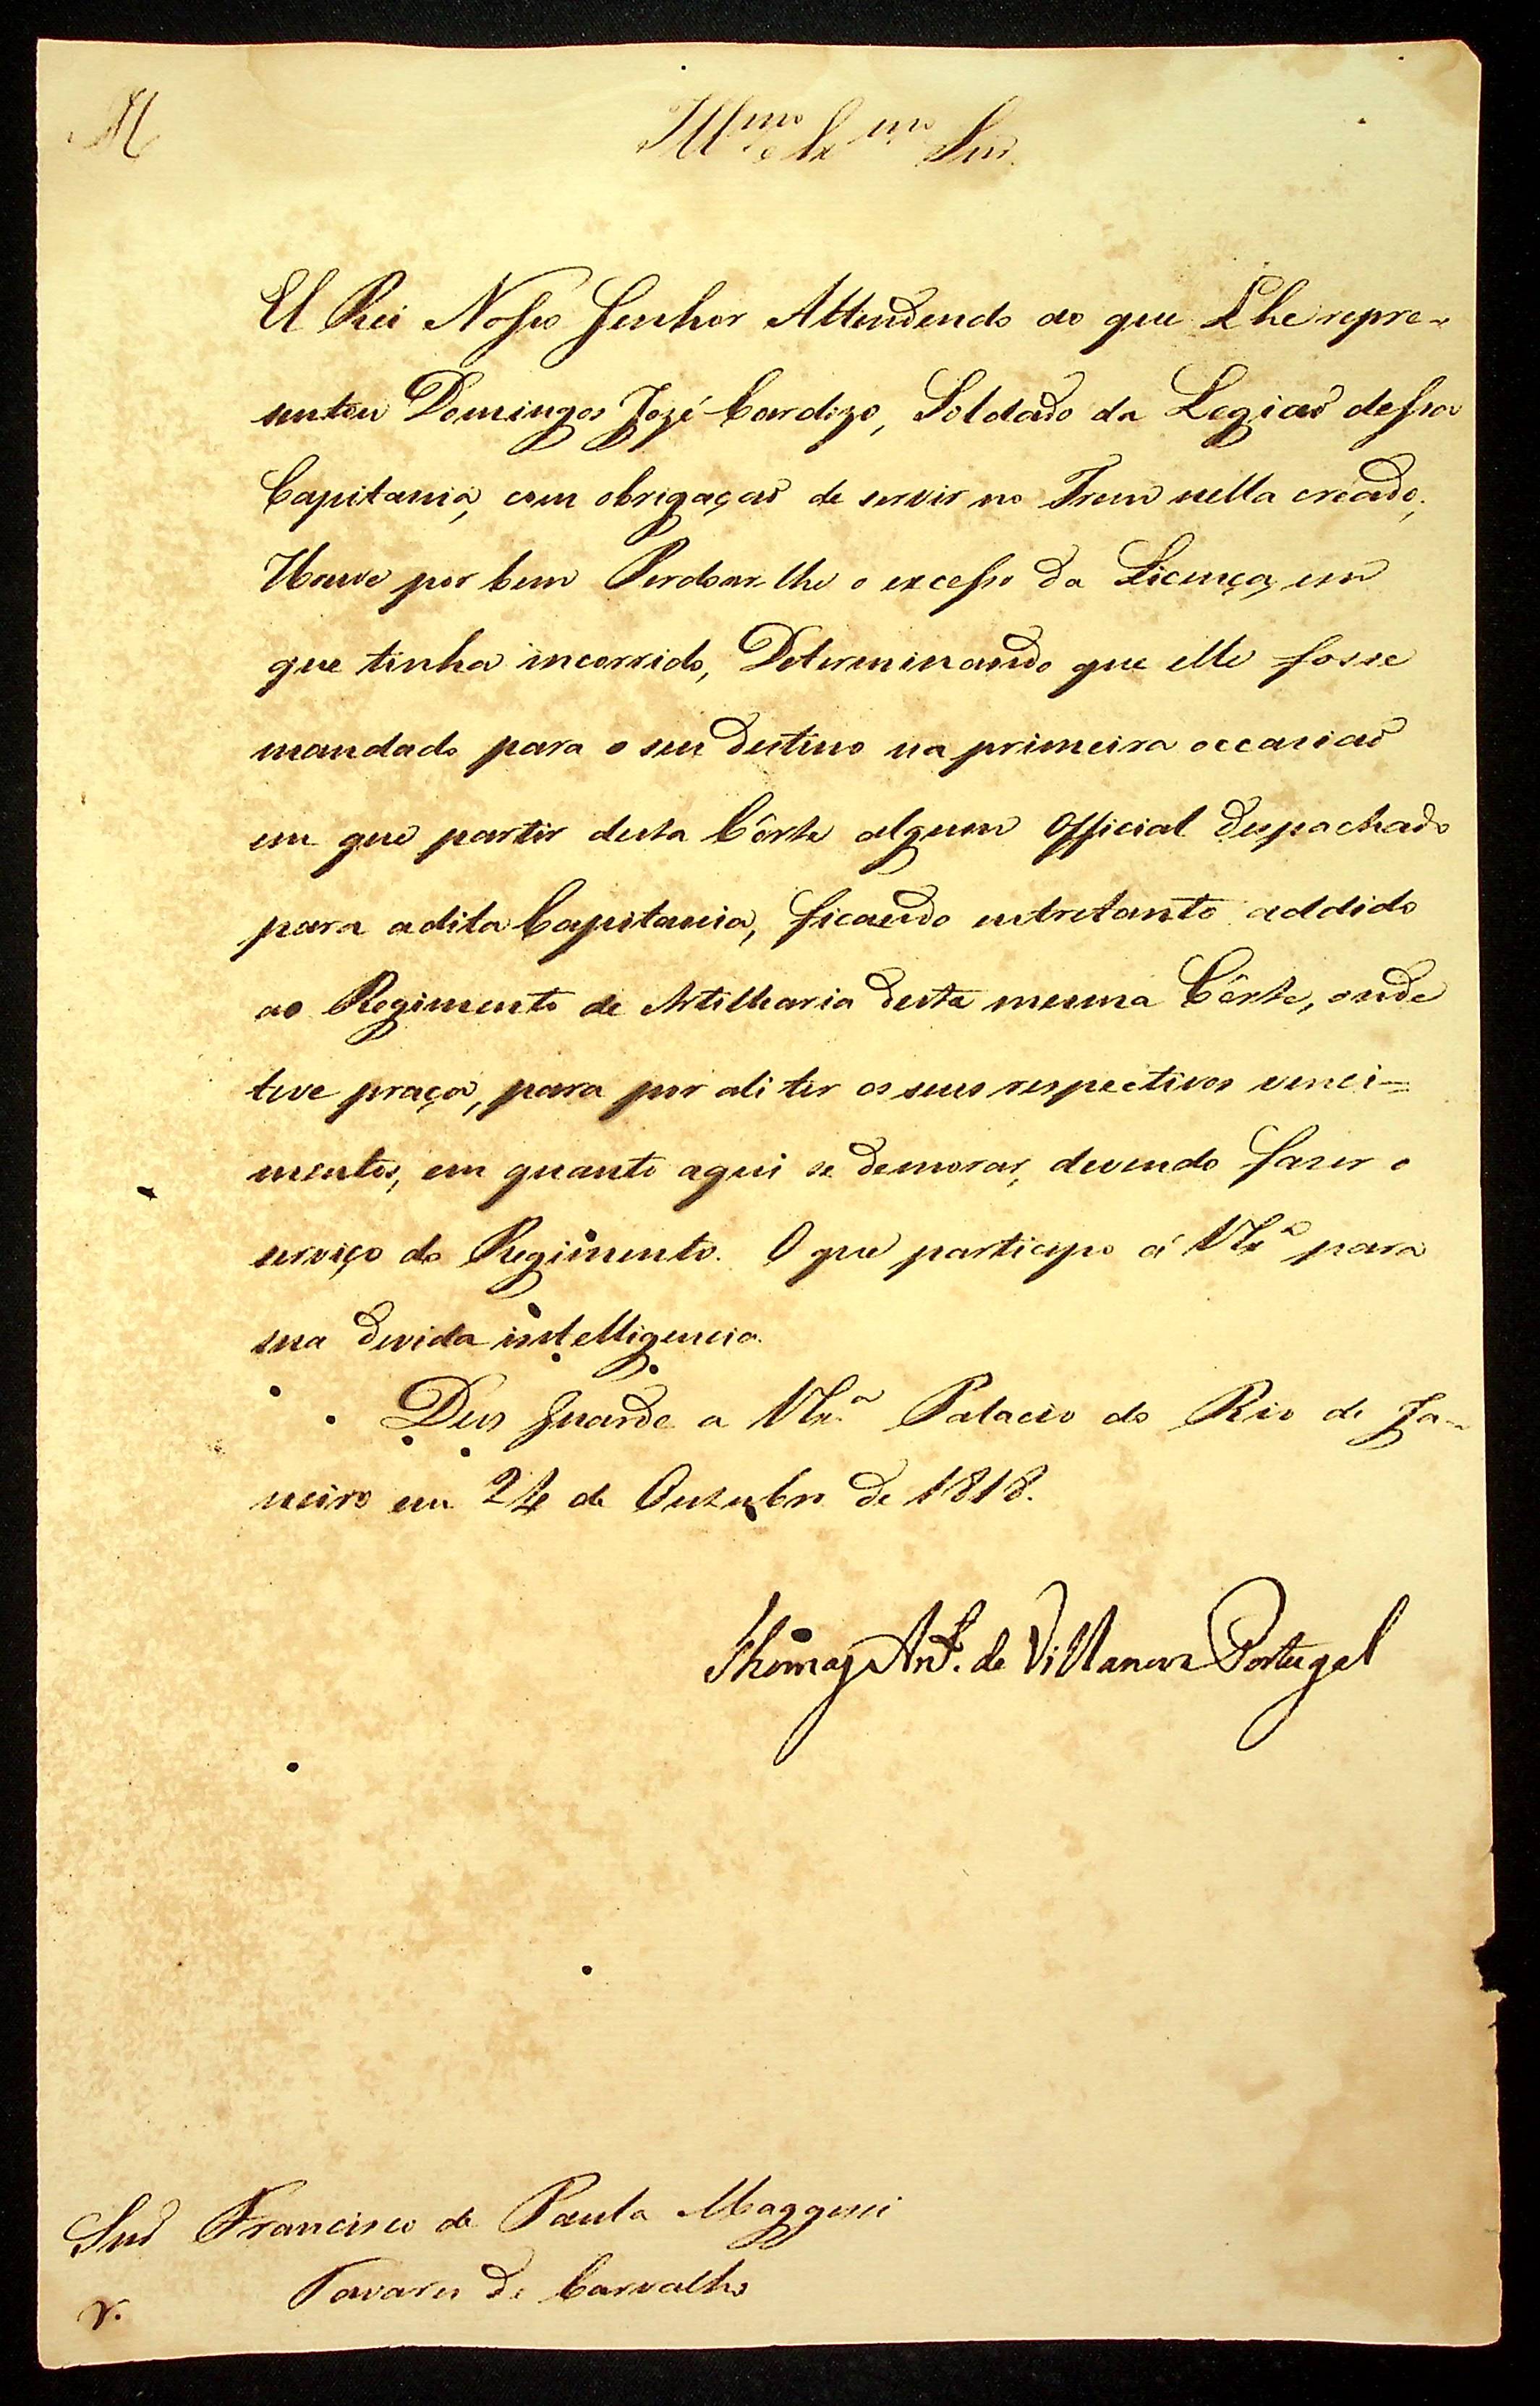 M
Ill.mo e Ex.mo Snr.
El Rei Nosso Senhor Attendendo ao que Lhe repre-
sentou Domingos Jozé Cardozo, Soldado da Legiaõ dessa
Capitania, com obrigaçaõ de servir no Trem nella creado,
Houve por bem Perdoar-lhe o excesso da Licença, em
que tinha incorrido, Determinando que elle fosse
mandado para o seu destino na primeira occasiaõ
em que partir desta Côrte algum Official despachado
para a dita Capitania, ficando entretanto addido
ao Regimento de Artilharia desta mesma Côrte, onde
teve praça, para por ali ter os seus respectivos venci=
mentos, em quanto aqui se demorar, devendo fazer o
serviço do Regimento. O que participo á VEx.a para
sua devida intelligencia.
Deus Guarde a VEx.a Palacio do Rio de Ja-
neiro em 24 de Outubro de 1818.
Thomaz Ant.º de Villanova Portugal
Snr Francisco de Paula Maggessi
Tavares de Carvalho